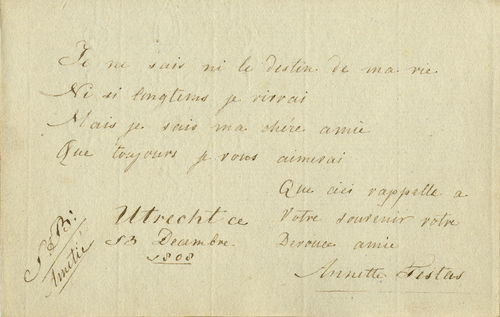 Je ne sais ni le destin de ma vie
Ni si longtems je vivrai
Mais je sais ma chére amie
Que toujours je vous aimerai
Que ceci rappelle a
votre souvenir votre
Devouée amie
Annette Testas
Utrecht ce
13 Decembre
1808
Amitié